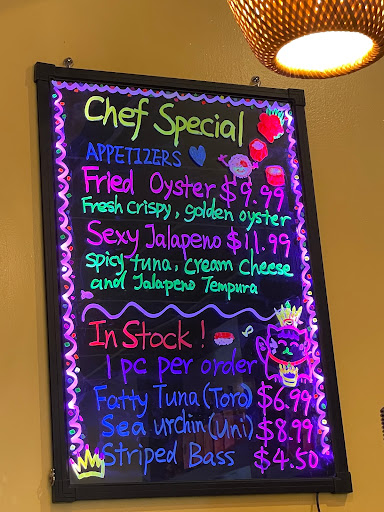 Chef Special
APPETIZERS
Fried Oyster $9.99
Fresh crispy, golden oyster
Sexy Jalapeno $11.99
Spicy tuna, cream cheese
and Jalapeno Tempura
In Stock!
1 pc per order
Fatty Tuna (Toro) $6.99
Sea urchin (Uni) $8.99
Striped Bass $4.50